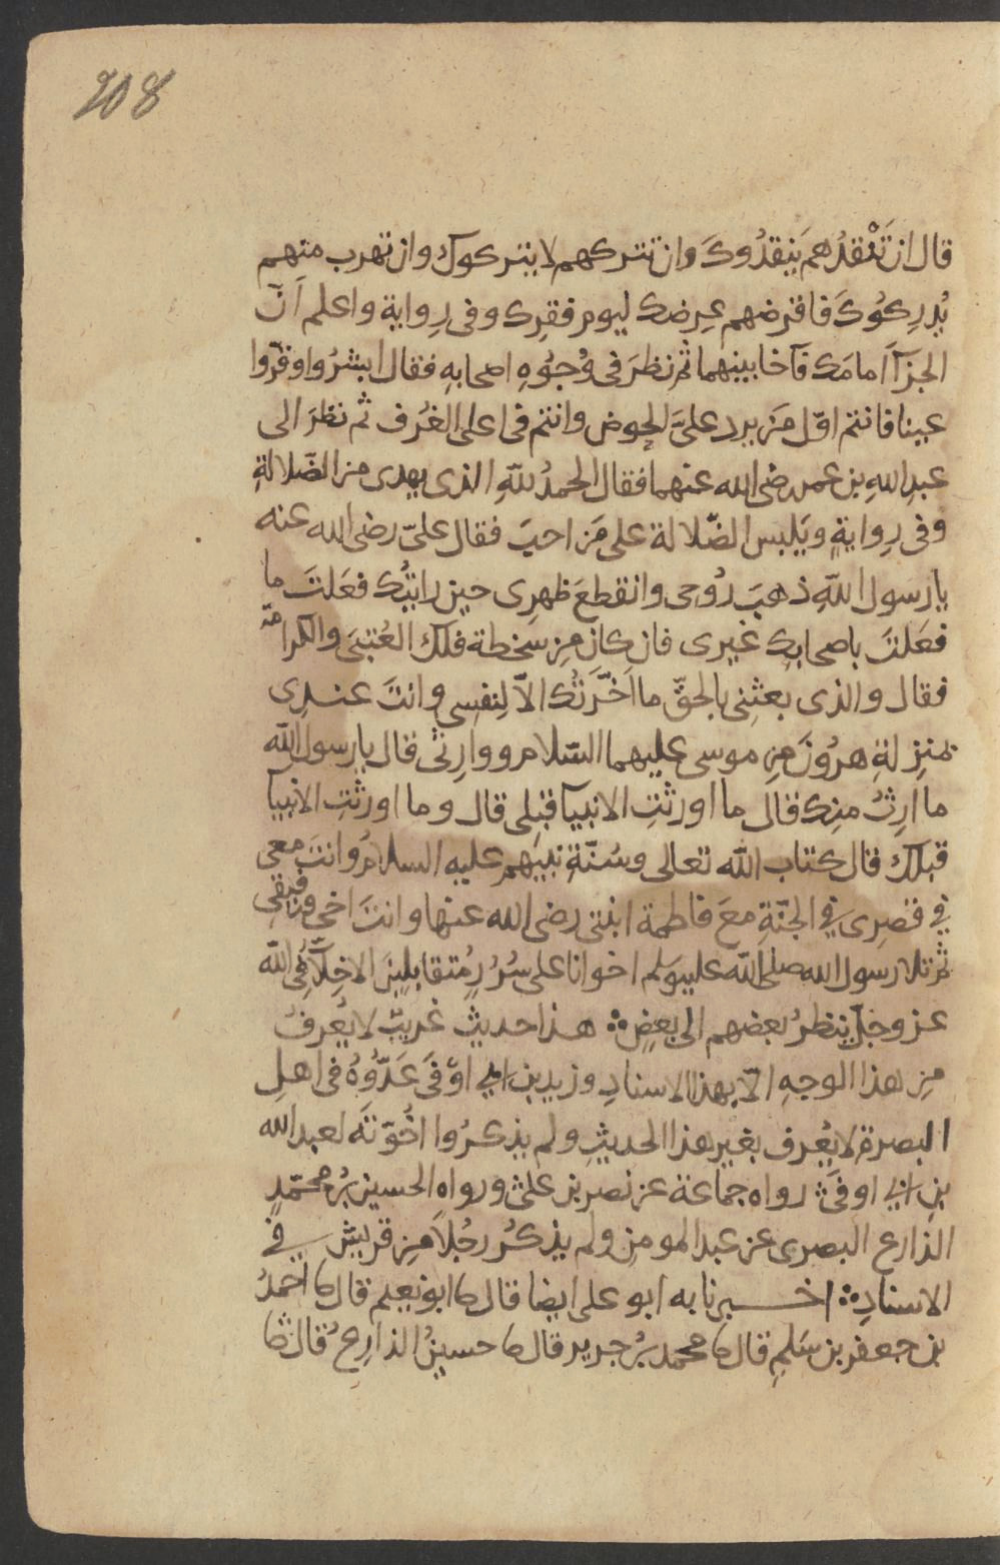 208
قال ان تَنْقدُهم يَنِقدُوكَ وان تتركهم لا يتركوك وان تهرب منهم
يُدرِكُوكَ فاقرضهم عِرضك ليوم فقرِك وفى رِواية واعلم اَنّ
الجزآ اَمامَك فآخا بينهما ثم نظرَ فى وُجُوهِ اصحابهِ فقال ابشرُوا وقرّوا
عينا فانتم اوّل مَن يرد علىَّ الحوض وانتم فى اعلى الغُرف ثم نظرَ الى
عبدِ اللهِ بن عمر رضى الله عنهما فقال الحمدُ للهِ الذى يهدى من الضّلالةِ
وفى رِوايةٍ ويَلبس الضّلالة على مَن احبَ فقال علىّ رضى الله عنه
يا رسول اللهِ ذهبَ رُوحى وانقطعَ ظهرِى حين رايتُك فعَلتَ ما
فعَلتَ باصحابِك غيرى فان كان مِن سخطة فلك العُتبىَ والكرامة
فقال والذى بعثنِى بالحقّ ما اَخّرَتُك الاّ لِنفسِى وانتَ عندِى
بمنزِلةِ هرُونَ مِن موسى عليهما السّلام ووارِثى قال يا رسول الله
ما ارِثُ منِك قال ما اورثتِ الانبيآ قبلِى قال وما اورثتِ الانبيآ
قبلك قال كتاب الله تعالى وسُنّةِ نبيّهم عليه السلامُ وانتَ معى
في قصرِى في الجنّةِ معَ فاطمة ابنتى رضى الله عنها وانتَ اخى ورفيقى
ثم تلا رسول الله صلى الله عليه وسلم اخوانا على سُرُرٍ مُتقابلين الاخِلّآ فى الله
عز وجلّ ينظرُ بعضهم الى بعضٍ ∴ هذا حديث غريبٌ لا يُعرفُ
مِن هذا الوجهِ الاّ بهذا الاسنادِ وزيد بن ابى اوْفَى عَدّوُهُ فى اهلِ
البصرةِ لا يُعرف بغير هذا الحديثِ ولم يذكرُوا اخُوّتَه لعبد الله
بنِ ابى اوفَى رواه جماعة عن نصر بن علىّ ورواه الحسين بن محمّدٍ
الذارع البصرى عن عبد المومن ولم يذكُر رجُلاً مِن قريش في
الاسنادِ ∴ اخبرنا به ابو على ايضا قال نا ابو نعيم قال نا احمدُ
بن جعفر بن سَلمِ قال نا محمد بن جرير قال نا حسينُ الذارعُ قال ثنا